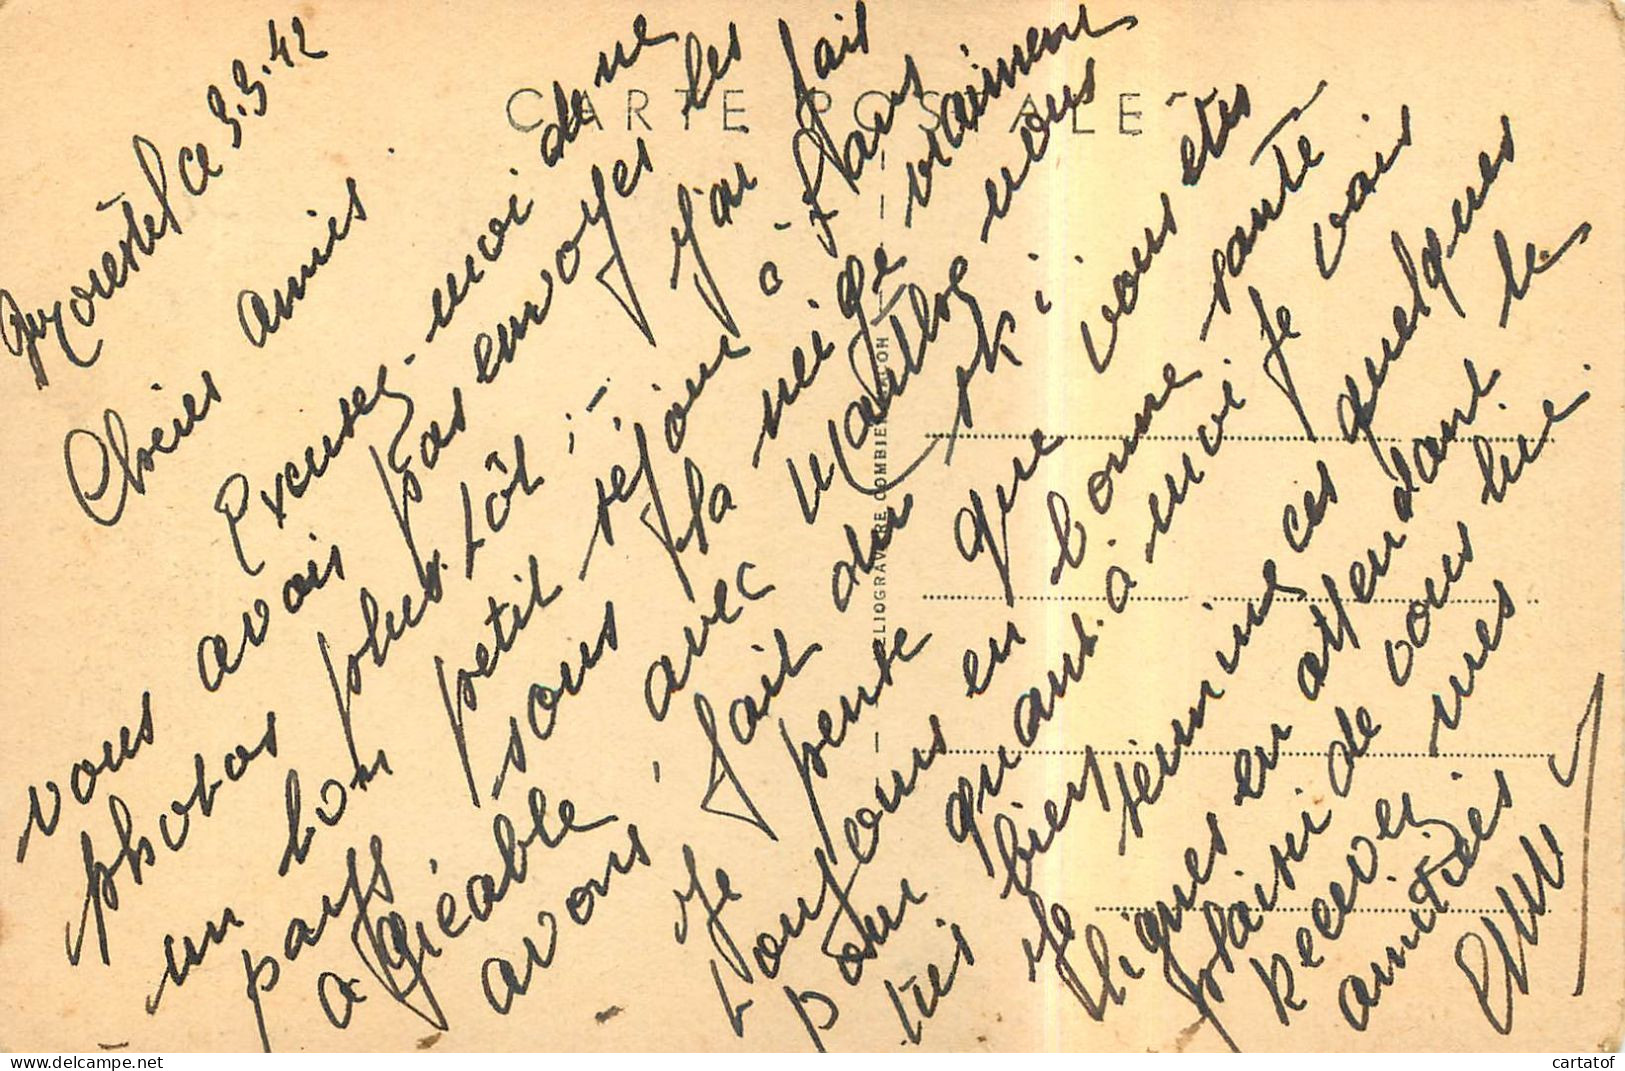 CARTE POSTALE
HELIOGRAVURE COMBIER MACON
ce 3.3.42
Chères amies.
Excusez-moi de ne
vous avoir pas envoyés les
photos plus. tôt ; - j'ai fait
un bon petit séjour à
pays sous la neige vraiment
agréable, avec nous
avons fait du ski.
Je pense que vous êtes
toujours en bonne santé
pour quant. à moi je vais
très bien.
Je termine ces quelques
lignes en attendant le
plaisir de vous lire.
Recevez mes
amitiés
cartatof